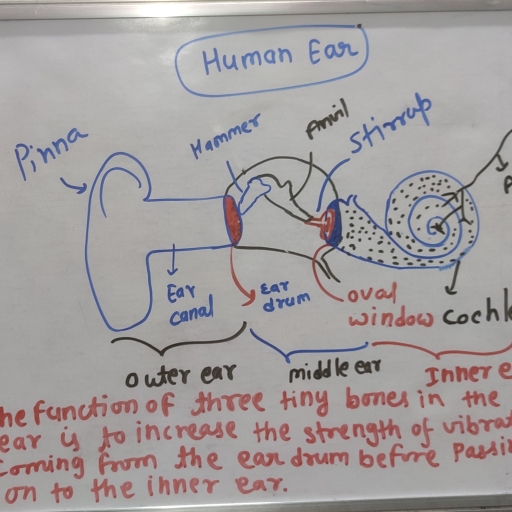 Human Ear
Pinna
Hammer
Anvil
Stirrup
Ear
canal
Ear
drum
oval
window
Cochl
outer ear
middle ear
Inner e
he function of three tiny bones in the
ear is to increase the strength of vibrat
coming from the ear drum before Passi
on to the inner ear.